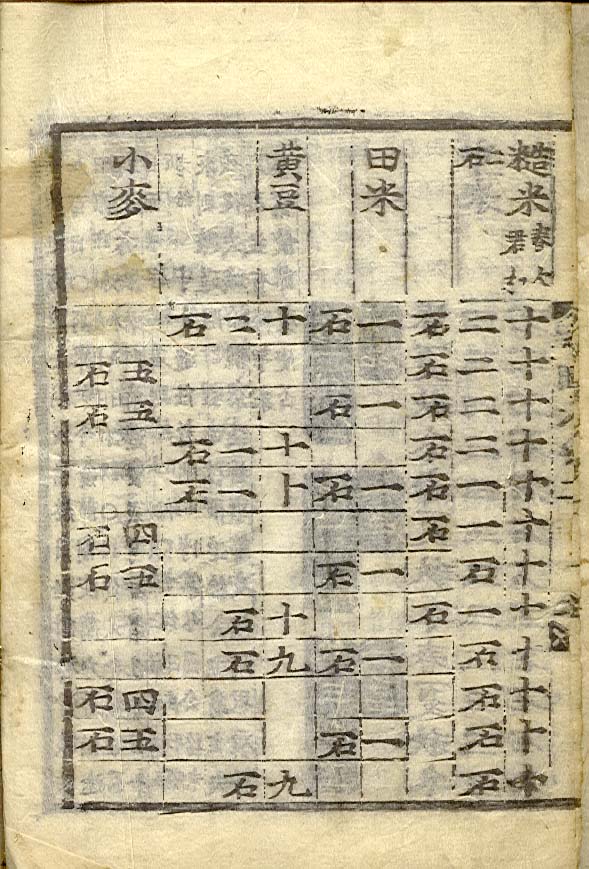 糙米春
十十十十十十十十十十十十
石
二二二二一一石一石石石石
石石石石石石石
田米
一一一一一一
石石石石石石
黃豆
十十十十九九
二一一石石石
石石石
小麥
五五四五四五
石石石石石石